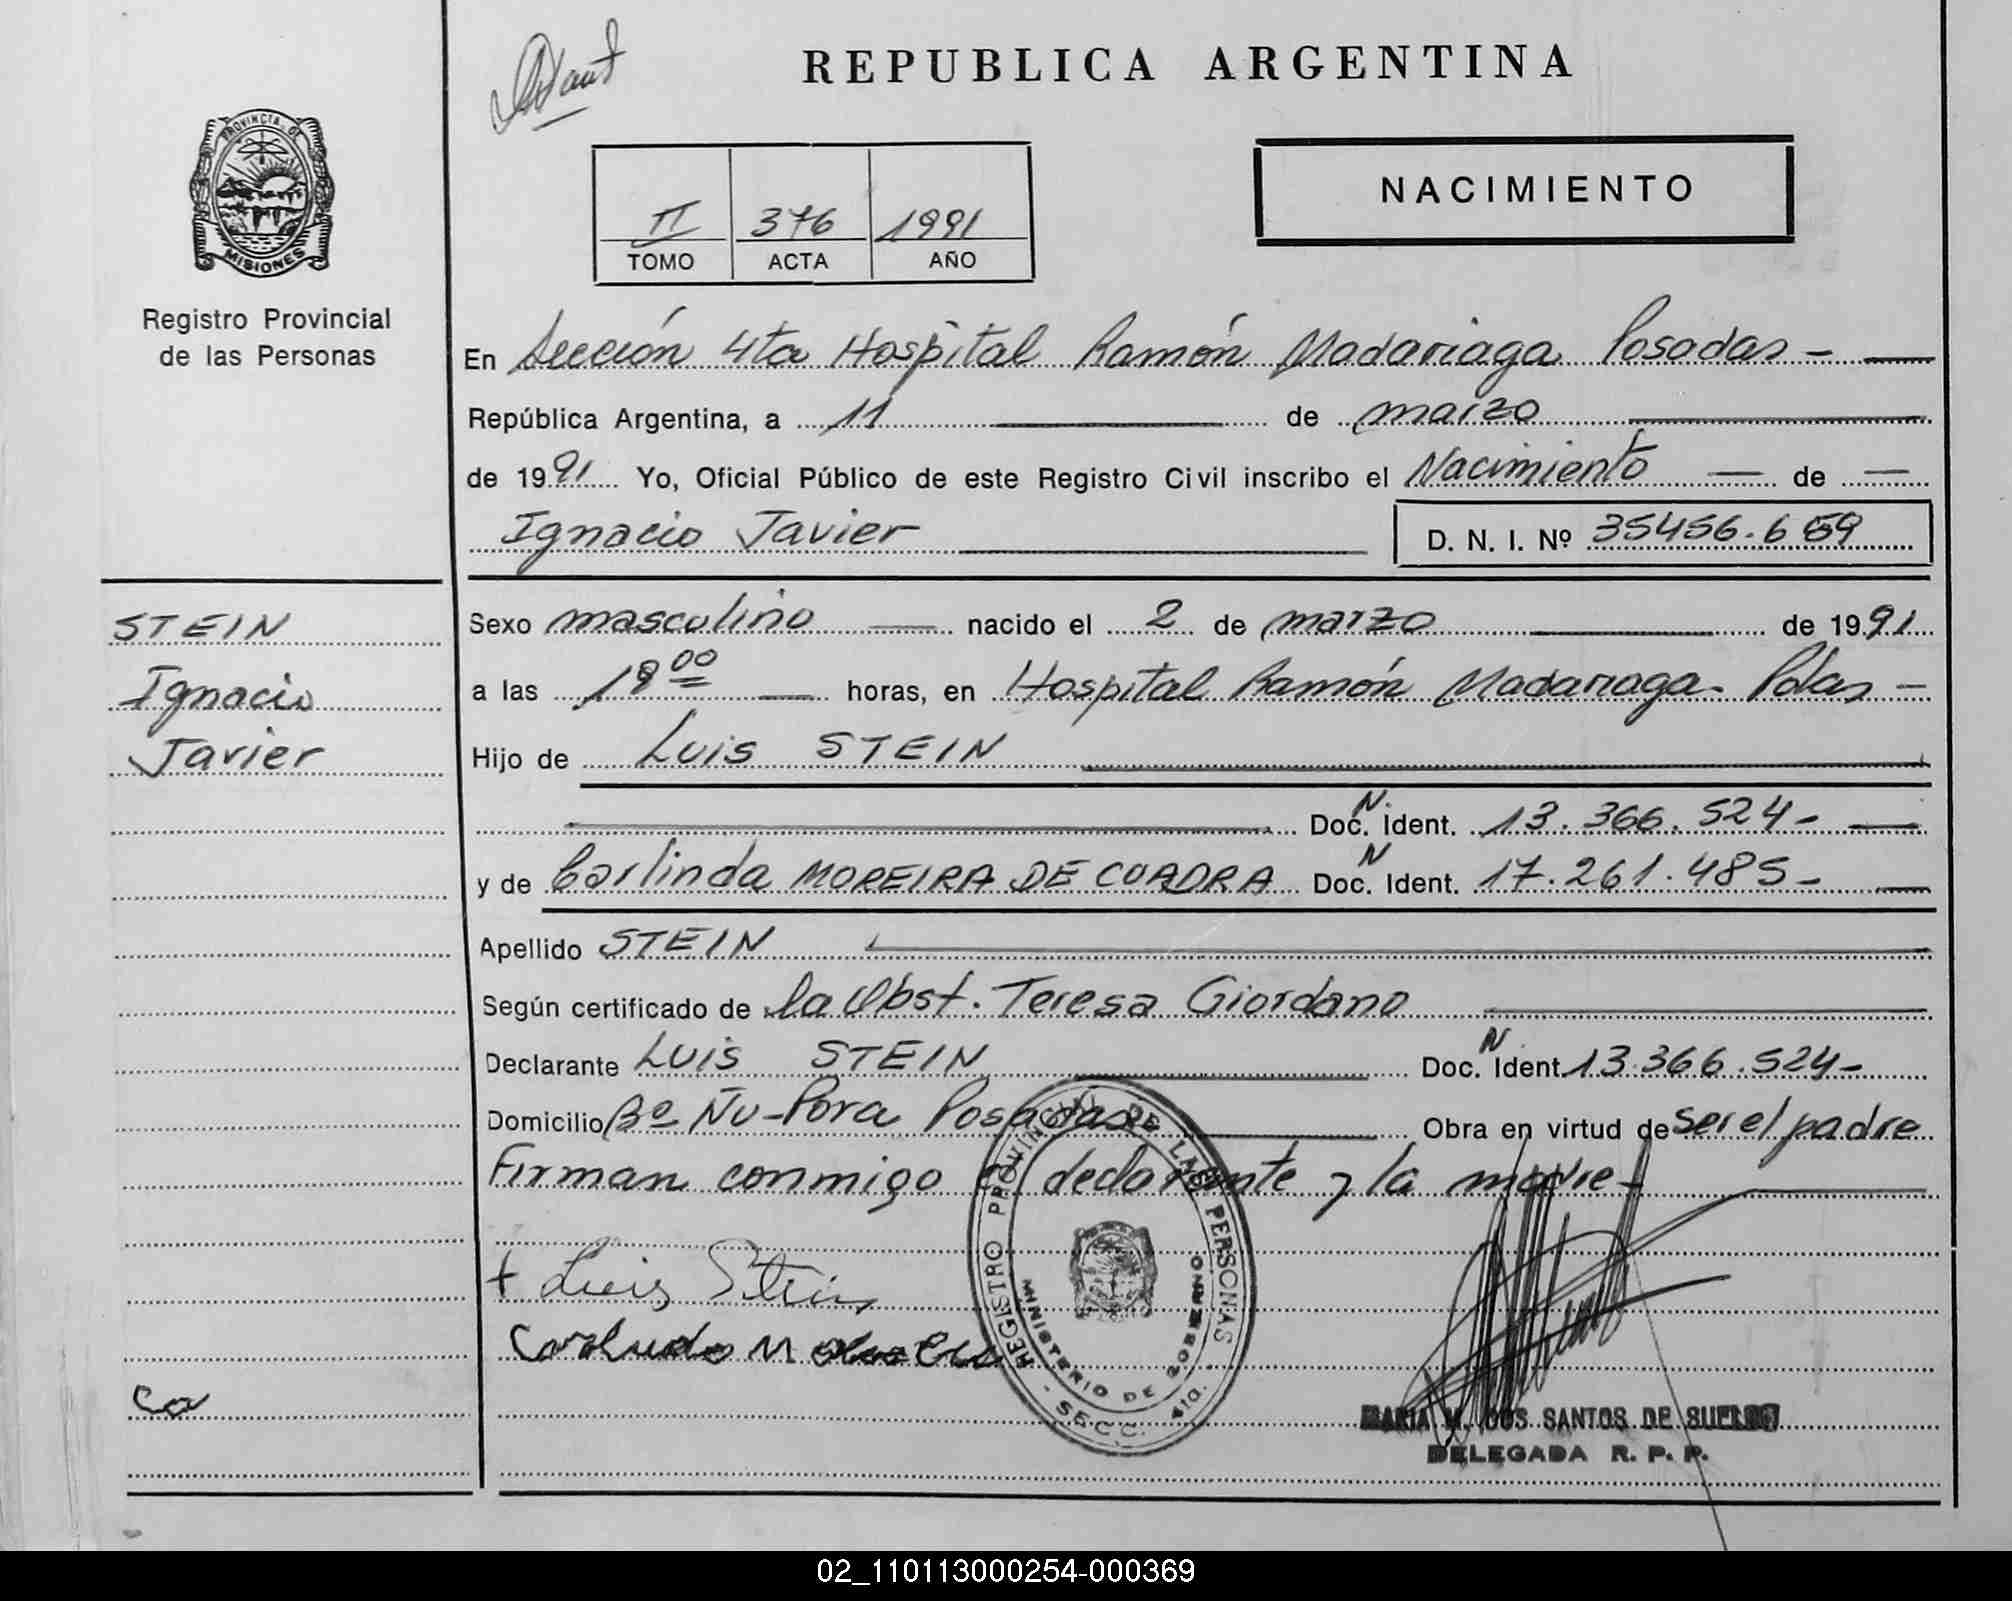 REPUBLICA ARGENTINA
PROVINCIA DE
MISIONES
Registro Provincial
de las Personas
II 376 1991
TOMO ACTA AÑO
NACIMIENTO
En Sección 4ta Hospital Ramón Madariaga Posadas -
República Argentina, a 11 de marzo
de 1991 Yo, Oficial Público de este Registro Civil inscribo el Nacimiento — de —
Ignacio Javier D. N. I. Nº 35456.659
STEIN
Ignacio
Javier
Sexo masculino nacido el 2 de marzo de 1991
a las 18 00 horas, en Hospital Ramón Madariaga - Pdas -
Hijo de Luis STEIN
Doc. N. Ident. 13.366.524 -
y de Carlinda MOREIRA DE CUADRA Doc. N Ident. 17.261.485 -
Apellido STEIN
Según certificado de la Obst. Teresa Giordano
Declarante Luis STEIN Doc. N Ident. 13.366.524 -
Domicilio Bº Ñu-Pora Posadas Obra en virtud de ser el padre
Firman conmigo el declarante y la madre -
+ Luis Stein
REGISTRO PROVINCIAL DE LAS PERSONAS
MINISTERIO DE GOBIERNO
- SECC. 4ta. -
MARIA DOS SANTOS DE
DELEGADA R. P. P.
Ca
02_110113000254-000369